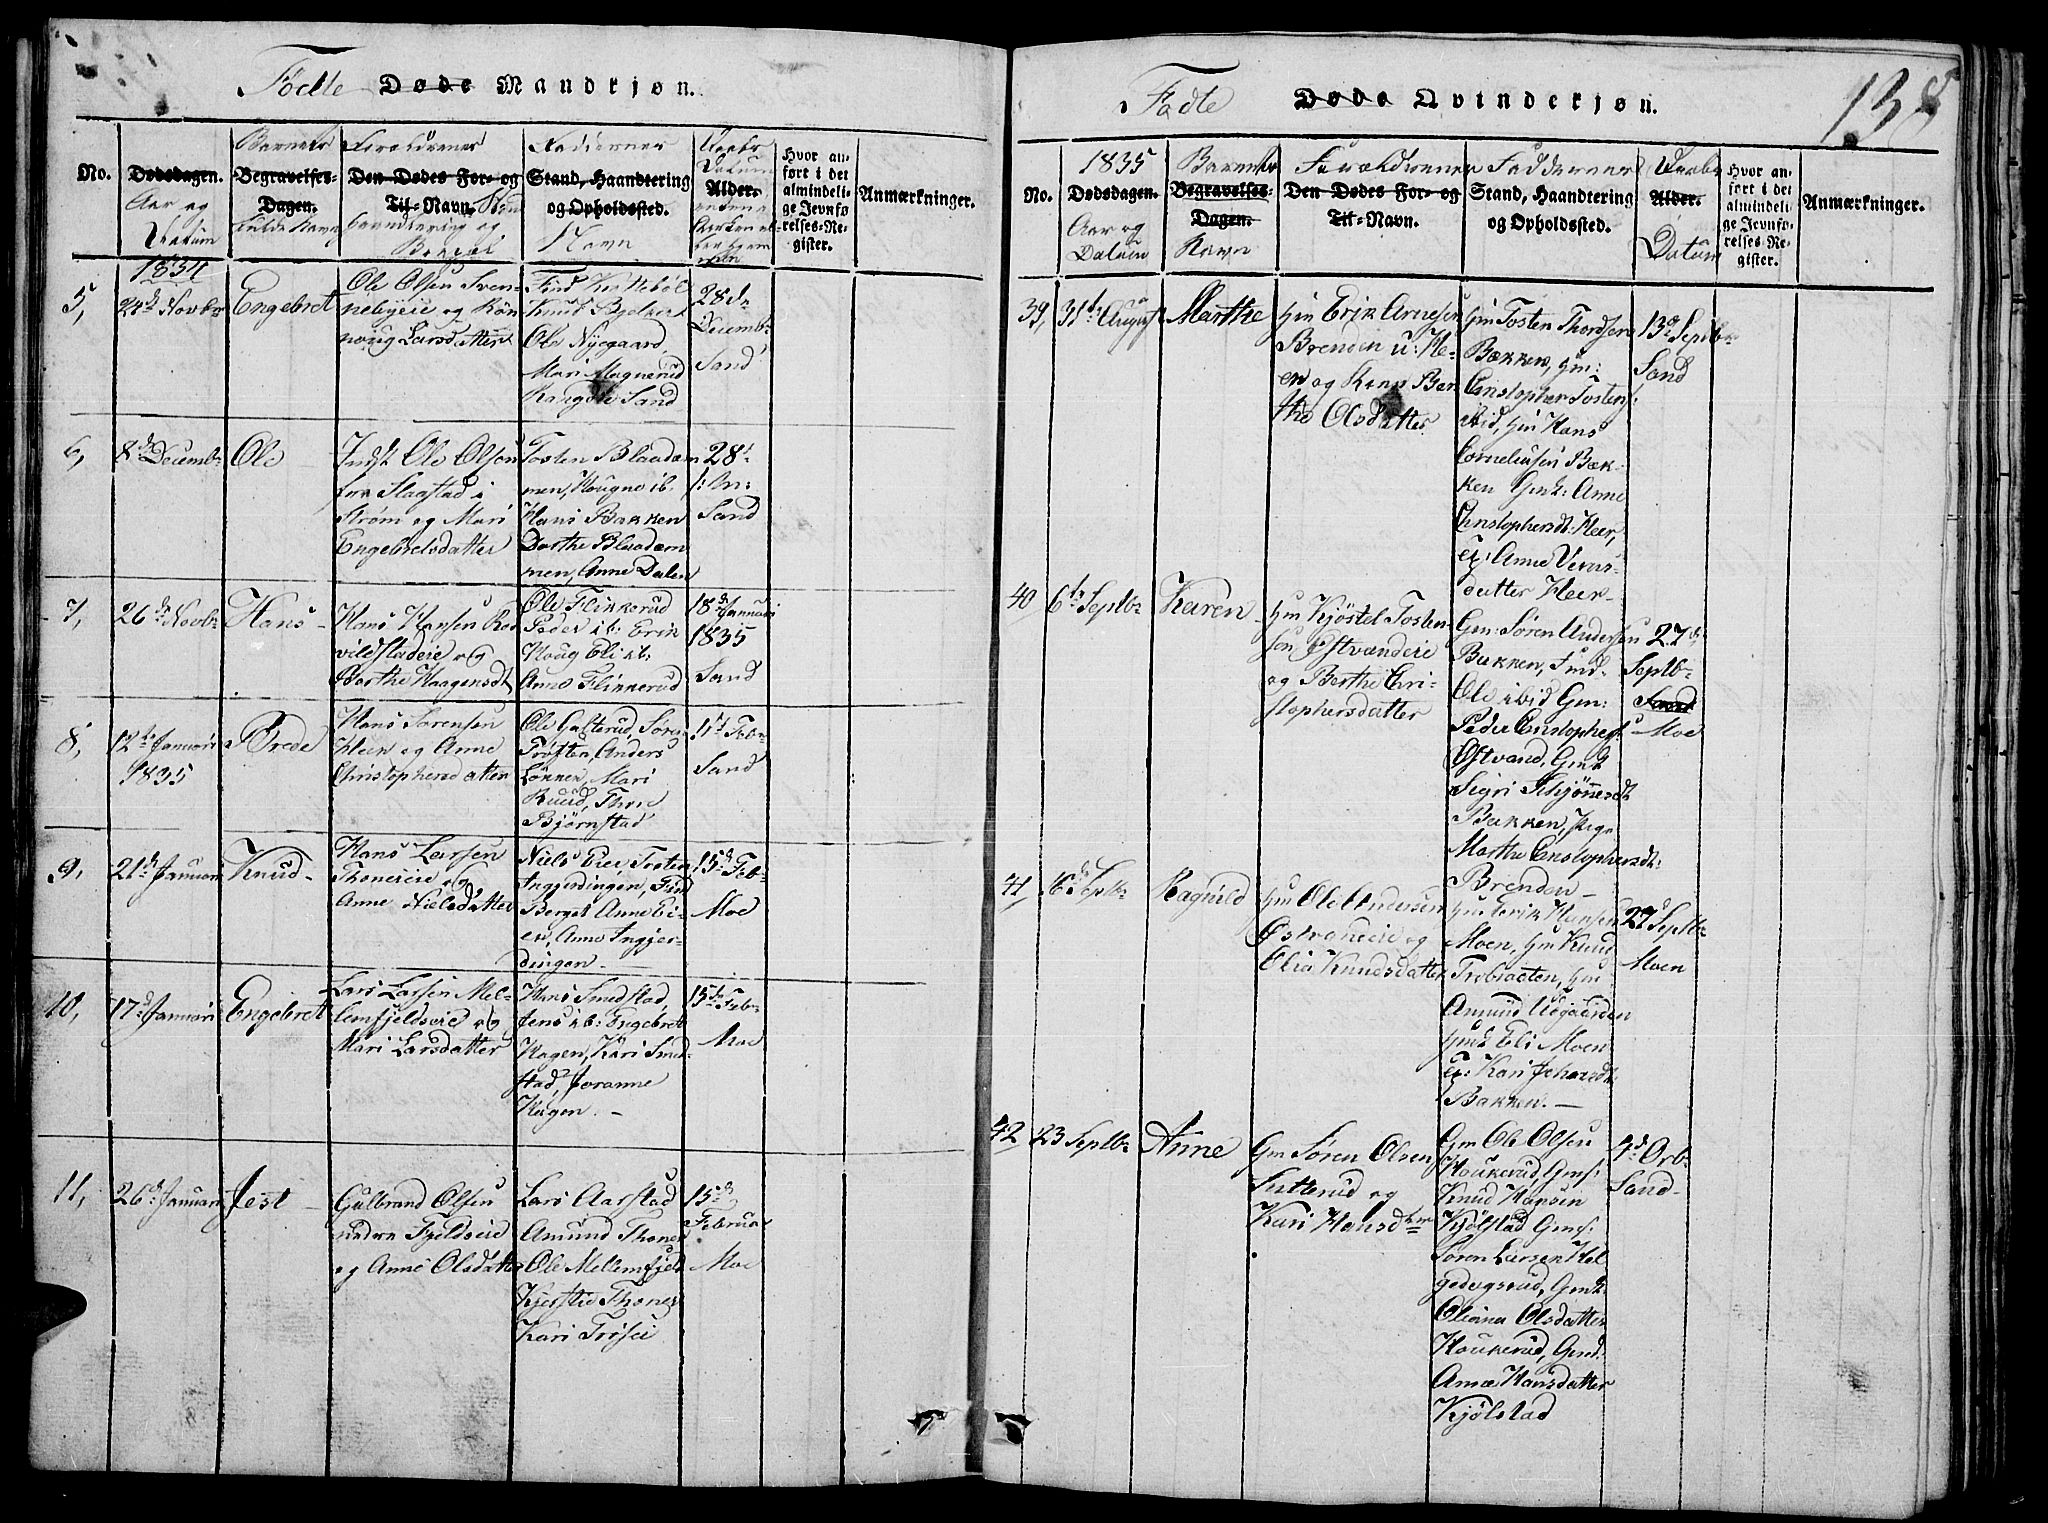 Födte Døde Mandkjøn.
No.
Dødsdagen.
Aar og
Datum
Barnets
Begravelses-
Dagen.
fulde Navn
Forældrenes
Den Dødes For- og
Til-Navn.
Haandtering og
Bopæl
Faddernes
Stand, Haandtering
og Opholdssted.
Navn
Daabs
Datum
Alder.
Hvor an-
ført i det
almindeli-
ge Jevnfø-
relses-Re-
gister.
Anmærkninger.
1834
5,
24de Novbr
Engebret
Ole Olsen Sven-
nebyeie og Rön-
noug Larsdatter
Find Kattebøl
Knud
Ole Nÿegaard
Mari Magnerud
Sand
28de
Decembr
Sand
6,
8de Decembr
Ole
Indst Ole Olsen
fra Slaastad i
Strøm og Mari
Engebretsdatter
Tosten Blaadam
men, Hougne ib.
Hans Bakken
Dorthe Blaadam
men, Anne Dalen
28d
Sand
7,
26de Novbr
Hans
Hans Hansen
vildstadeie og
Berthe Haagensdt
Ole Flikkerud
Peder ib: Erik
Houg Eli ib:
Anne Flikkerud
18de Januari
1835
Sand
8,
12te Januari
1835
Brede
Hans Sorensen
Heer og Anne
Christophersdatter
Ole Galterud, Søren
Anders
Lønnen, Mari
Ruud, Thore
Björnstad
1ste Febr
Sand
9,
21de Januari
Knud
Hans Larsen
Thoneieie og
Anne Nielsdatter
Niels Eier, Tosten
Ingjerdingen, Find
Berget, Anne Ei-
er, Anne Ingjer-
dingen
15de Feb-
Moe
10,
17de Januari
Engebret
Lars Larsen Mel-
lemfjeldseie og
Mari Larsdatter
Hans Smedstad,
Jens ib: Engebret
Hagen, Kari Smed-
stad, Joranne
Hagen.
15de Feb-
Moe
11,
26de Januari
Jest
Gulbrand Olsen
Fjeldseie
og Anne Olsdatter
Lars Aarstad
Amund Thoner
Ole Mellemfjeld
Kjerstie Thoner
Kari
15de
Februar
Moe
Fødte Døde Qvindekjøn.
138
No.
1835
Dødsdagen.
Aar og
Datum
Barnets
Begravelses-
Dagen.
Navn
Forældrenes
Den Dødes For- og
Til-Navn.
Faddernes
Stand, Haandtering
og Opholdssted.
Daabs
Alder.
Datum
Hvor an-
ført i det
almindeli-
ge Jevnfø-
relses-Re-
gister.
Anmærkninger.
39,
31te August
Marthe
Hm Erik Arnesen
Brenden u: He-
er og Kone Ber
the Olsdatter
Gm Tosten Thordsen
Bakken, Gm:
Cristopher Tostens:
ibid, Hm Hans
Corneliusen Bak-
ken Gmk: Anne
Cristophersdt: Heer,
Anne Veras-
datter Heer-
13de Septbr
Sand
40
6te Septbr
Karen
Hm Kjöstel Tosten-
sen Østvandeie
og Berthe Chri-
stophersdatter
Gm: Søren Andersen
Bakken,
Ole ibid Gm:
Peder Cristophers
Østvand, Gmk
Sigri Schjönnesdt
Bakken, Pige
Marthe Cristophersdt:
Brenden-
27de
Septbr
Sand
Moe
41
6de Septbr
Ragnild
Hm Ole Andersen
og
Olia Knudsdatter
Hm Erik Hansen
Moen, Hm Knud
Hm
Amund Udgaarden
Hmk Eli Moen
Kari Johansdt
Bakken.
27d Septbr
Moen
42
23 Septbr
Anne
Gm Søren Olsen
Sætterud og
Kari Hansdtr
Gm Ole Olsen
Houkerud, Gms:
Knud Hansen
Kjølstad Gms:
Soren Larsen Hel
gedagsrud, Gmk:
Oliana Olsdatter
Houkerud, Gmd.
Anne Hansdatter
Kjølstad
4d Octb
Sand